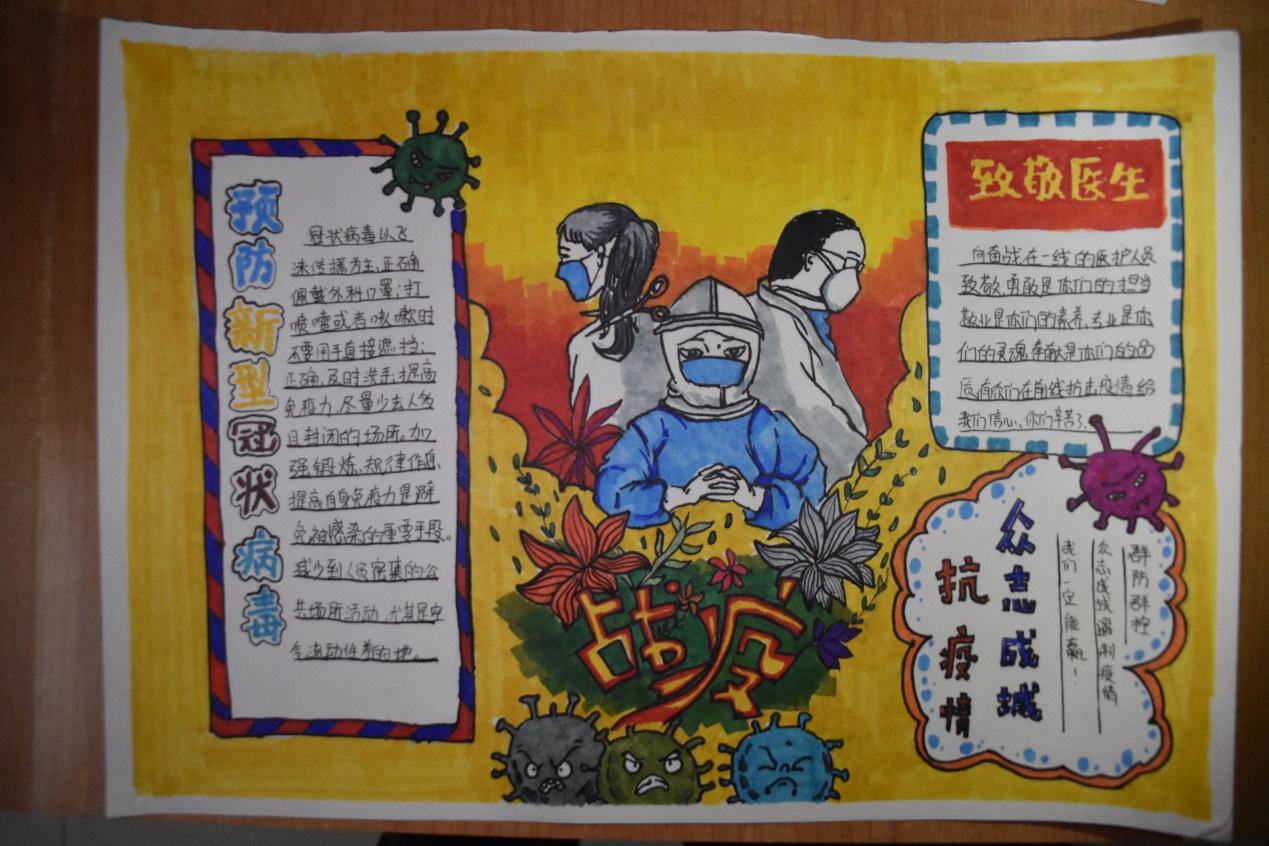 预防新型冠状病毒
冠状病毒以飞
沫传播为主,正确
佩戴外科口罩;打
喷嚏或者咳嗽时
不要用手直接遮挡;
正确、及时洗手;提高
免疫力、尽量少去人多
且封闭的场所。加
强锻炼、规律作息、
提高自身免疫力是避
免被感染的重要手段。
减少到人员密集的公
共场所活动,尤其是空
气流动性差的地。
战疫
致敬医生
向奋战在一线的医护人员
致敬,勇敢是你们的担当
敬业是你们的素养、专业是你
们的灵魂,奉献是你们的品
质,有你们在前线抗击疫情给
我们信心、你们辛苦了
群防群控
众志成城遏制疫情
我们一定能赢!
众志成城
抗疫情